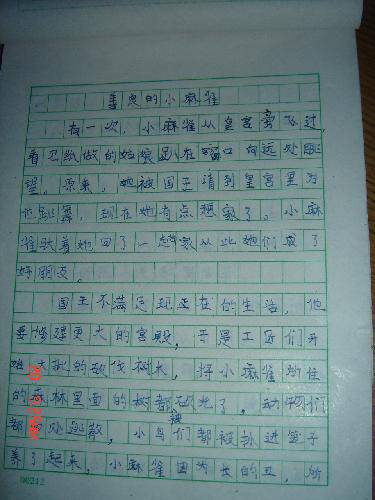 善良的小麻雀
有一次，小麻雀从皇宫旁飞过，
看见纸做的姑娘正在窗口向远处眺
望。原来，她被国王请到皇宫里为
他跳舞，现在她有点想家了。小麻
雀驮着她回了一趟家从此她们成了
好朋友。
国王不满足现在的生活，他
要修建更大的宫殿，于是工匠们开
始大批的砍伐树木，将小麻雀所住
的森林里面的树都砍光了，动物们
都 处逃散，小鸟们都被抓进笼子
养了起来，小麻雀因为长的丑，所
00212